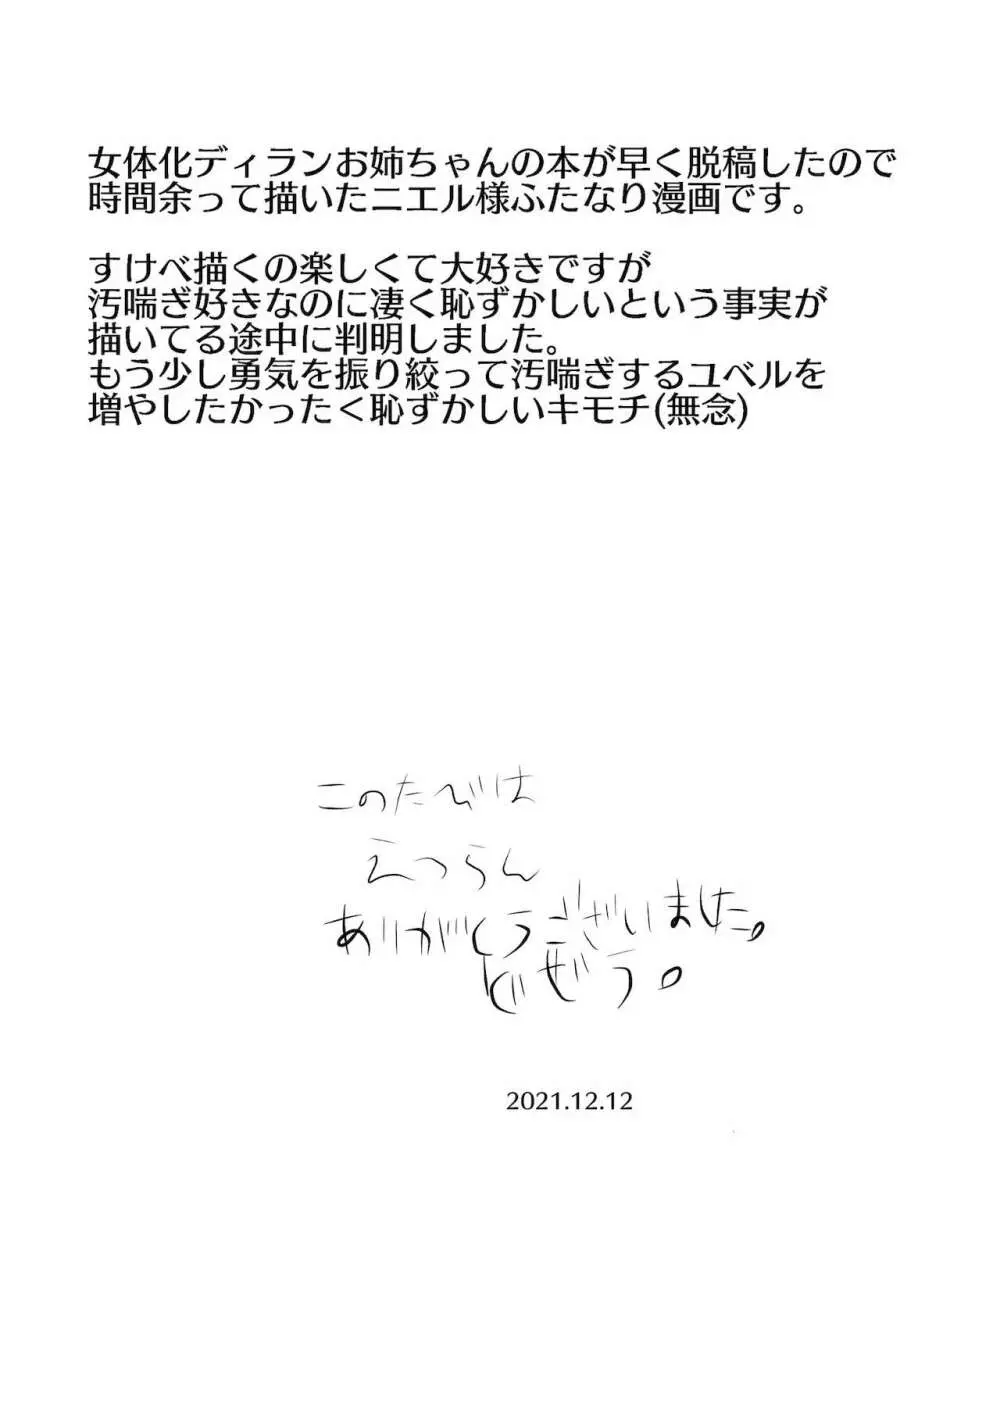 女体化ディランお姉ちゃんの本が早く脱稿したので
時間余って描いたニエル様ふたなり漫画です。
すけべ描くの楽しくて大好きですが
汚喘ぎ好きなのに凄く恥ずかしいという事実が
描いてる途中に判明しました。
もう少し勇気を振り絞って汚喘ぎするユベルを
増やしたかった<恥ずかしいキモチ(無念)
このたびは
えつらん
ありがとうございました。
どぜう。
2021.12.12